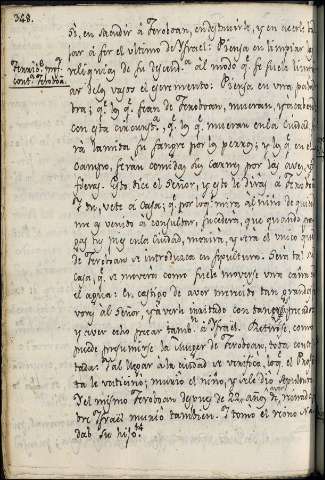 328.
Terrible prof.ª
contra Jeroboan.
se, en sacudir à Jeroboan, en destruirle, y en acerle ba-
jar à ser el ultimo de Ysrael: Piensa en limpiar las
reliquias de su descend.ª al modo q.e se suele limpi-
ar de los vasos el escremento: Piensa en una pala-
bra; q.e los q.e sean de Jeroboan, mueran, y acaben
con esta circunst.ª, q.e los q.e mueran en la Ciudad,
sea lamida su sangre por los perros; y los q.e en el
campo, seran comidas sus carnes por las aves, y
fieras. Esto dice el Señor, y esto le diràs à Jerobo
Y tu, vete à casa; q.e por lo q.e mira al niño de quien
me as venido à consultar, sucederà, que quando pon-
gas tu pie en la Ciudad, morirà, y serà el unico que
de Jeroboan se introduzca en sepultura. Serà tal su
casa, q.e se moverà como suele moverse una caña en
el agua: En castigo de aver irritado tan grande-
al Señor, y averle irritado con tan
y aver echo pecar tamb.n à Ysrael. Retirose, como
puede presumirse la Muger de Jeroboan, toda cons-
tada: Y al llegar à la ciudad se verificà, lo q.e el Profe-
ta le vaticinò; muriò el niño, y se le diò sepultura
Y el mismo Jeroboan despues de 22. años, de reinado
bre Ysrael muriò tambien. Y tomò el reino Na-
dab su hijo.